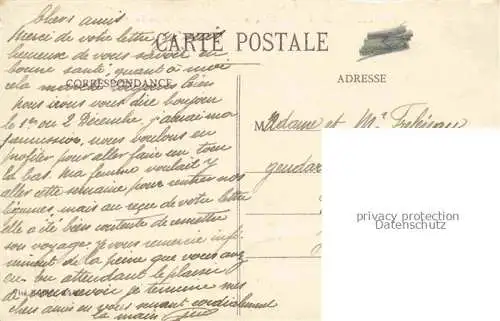 Chers amis
Merci de votre lettre je suis
heureuse de vous savoir en
bonne santé, quant à moi
cela marche toujours bien
nous irons vous dire bonjour
le 1er ou 2 Décembre, j'aurai ma
permission, nous voulons en
profiter pour aller faire un tour
là bas. Ma femme voulait y
aller cette semaine pour rentrer nos
légumes, mais au reçu de votre lettre
elle a été bien contente de remettre
son voyage. je vous remercie infi-
niment de la peine que vous avez
eu en attendant le plaisir
de vous revoir je termine mes
chers amis en vous serrant cordialement
la main
CARTE POSTALE
CORRESPONDANCE
ADRESSE
Madame et Mr
gendar
privacy protection
Datenschutz